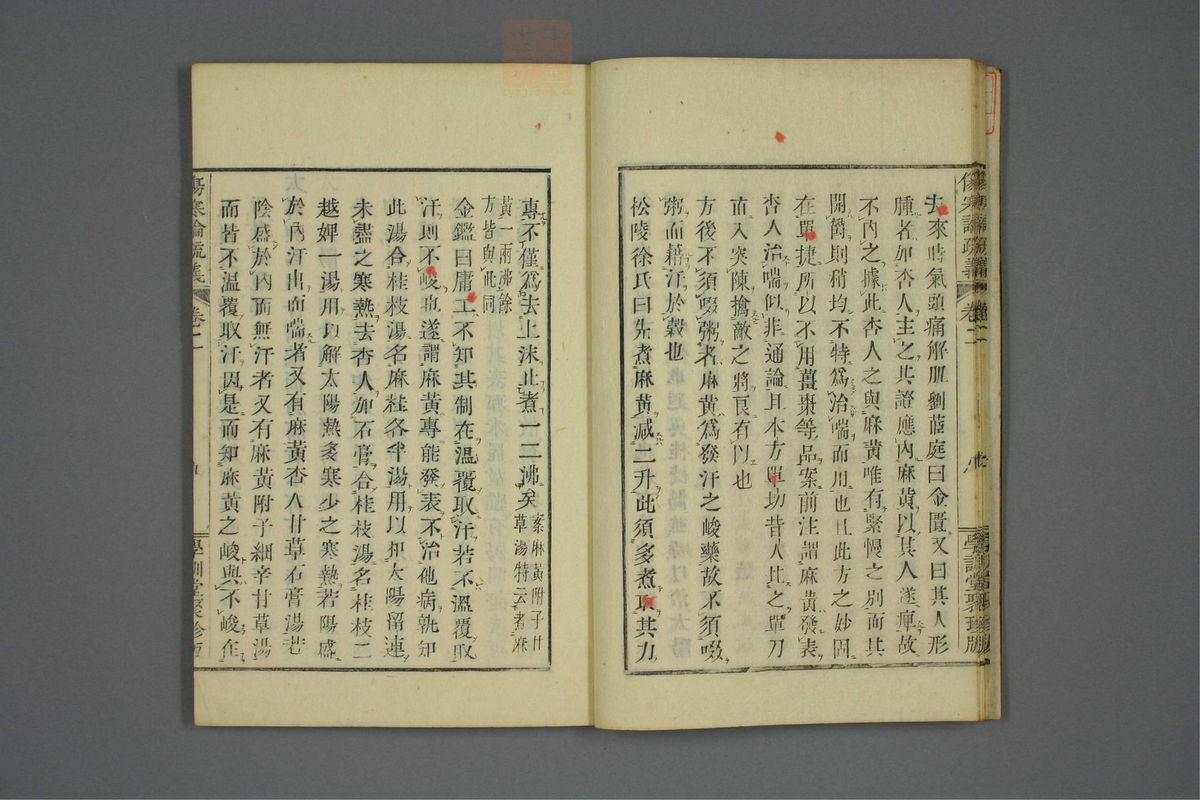 傷寒論疏義 卷二 學訓堂聚珍版
去來時氣頭痛解肌劉茝庭曰金匱又曰其人形
腫者加杏人主之其證應內麻黃以其人遂痺故
不內之據此杏人之與麻黃唯有緊慢之別而其
開鬱則稍均不特爲治喘而用也且此方之妙固
在單捷所以不用薑棗等品案前注謂麻黃發表
杏人治喘似非通論且本方單功昔人比之單刀
直入突陳擒敵之將良有以也
方後不須啜粥者麻黃爲發汗之峻藥故不須啜
粥而藉汗於穀也
松陵徐氏曰先煮麻黃減二升此須多煮取其力
專不僅爲去上沫止煮一二沸矣案麻黃附子甘
草湯特云煮麻
黃一兩沸餘
方皆與此同
金鑑曰庸工不知其制在溫覆取汗若不溫覆取
汗則不峻也遂謂麻黃專能發表不治他病孰知
此湯合桂枝湯名麻桂各半湯用以和太陽留連
未盡之寒熱去杏人加石膏合桂枝湯名桂枝二
越婢一湯用以解太陽熱多寒少之寒熱若陽盛
於內汗出而喘者又有麻黃杏人甘草石膏湯若
陰盛於內而無汗者又有麻黃附子細辛甘草湯
而皆不溫覆取汗因是而知麻黃之峻與不峻在
傷寒論疏義 卷二 九 學訓堂聚珍版